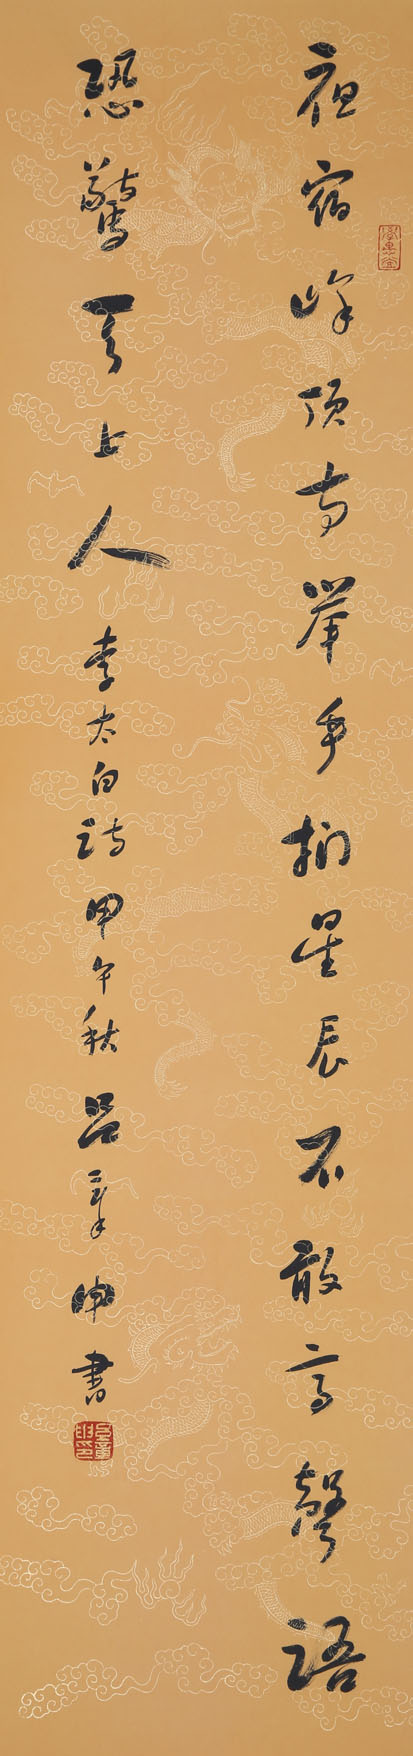 夜宿峰頂寺舉手捫星辰不敢高聲語
恐驚天上人李太白詩甲午秋吕章申書